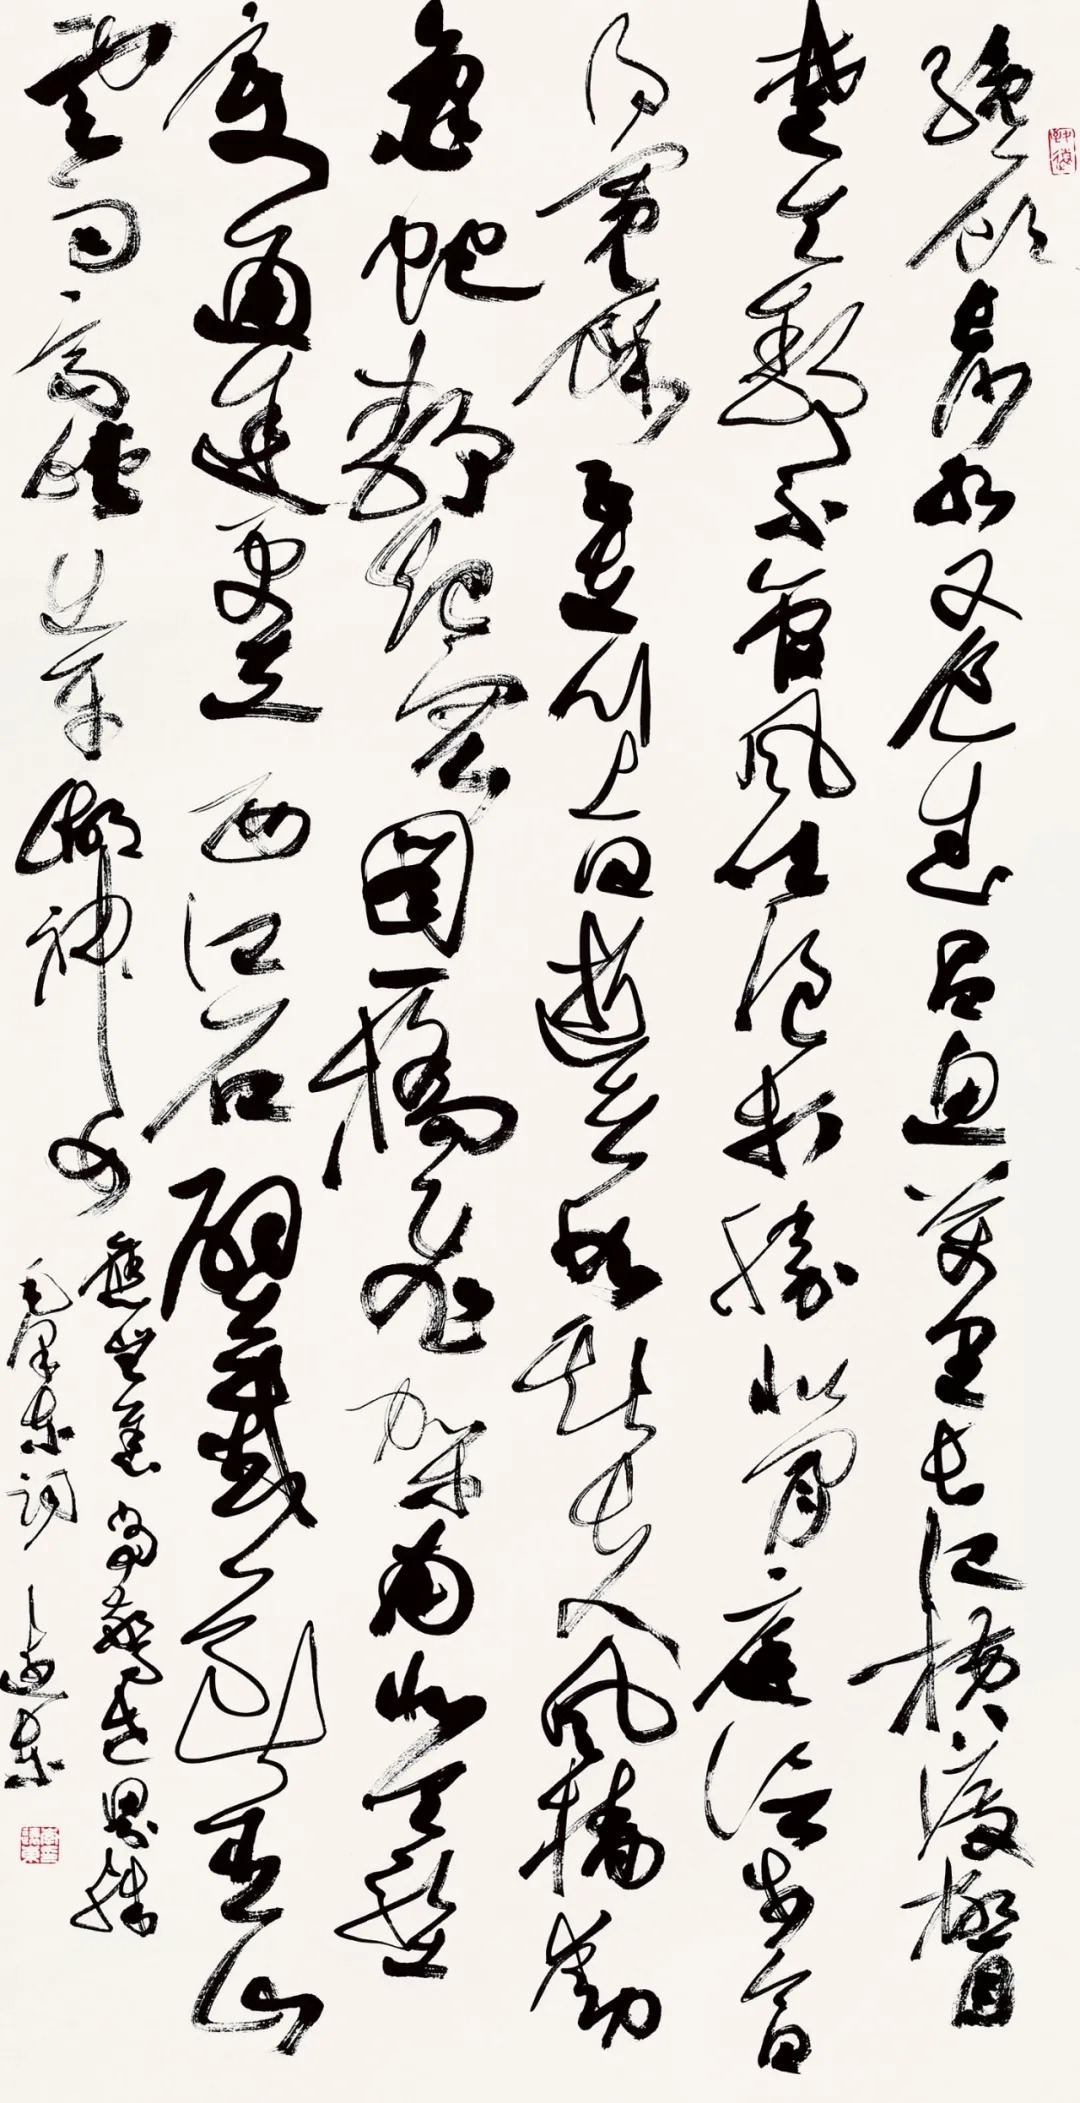 纔飲長沙水又食武昌魚萬里長江橫渡極目
楚天舒不管風吹浪打勝似閒庭信步今日
得寬餘子在川上曰逝者如斯夫風檣動
龜蛇靜起宏圖一橋飛架南北天塹
變通途更立西江石壁截斷巫山
雲雨高峽出平湖神女
應無恙當驚世界殊
毛澤東詞 遠東